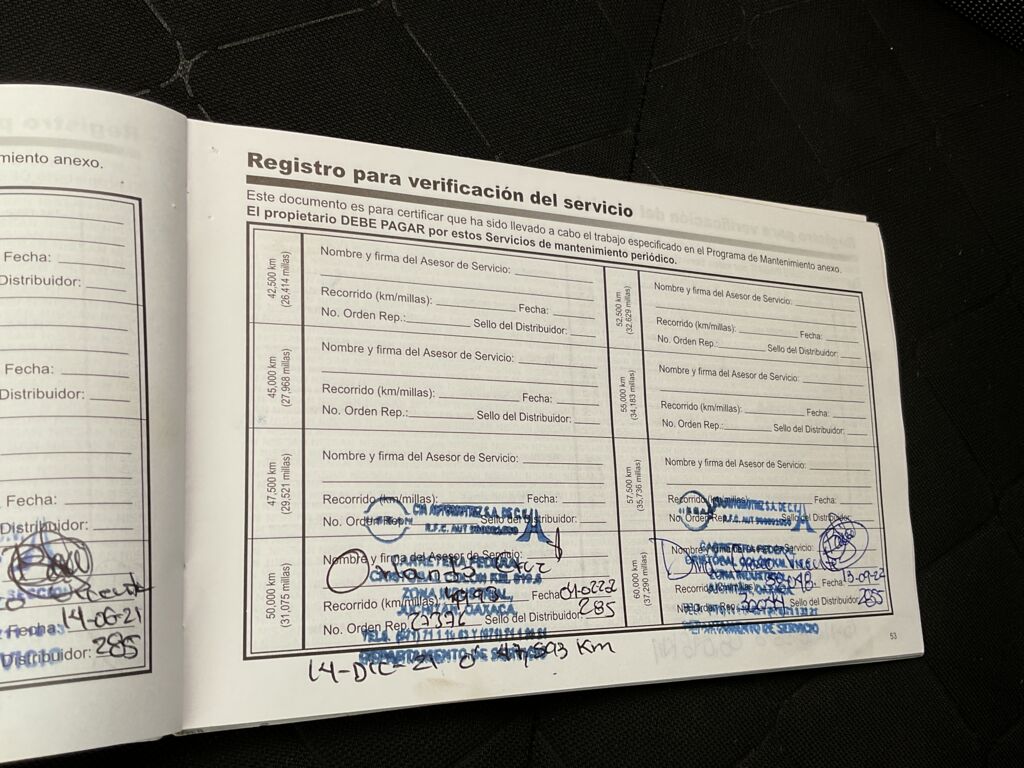 miento anexo.
Fecha:
Distribuidor:
Fecha:
Distribuidor:
Fecha:
Distribuidor:
Fecha: 14-06-21
Distribuidor: 285
Registro para verificación del servicio
Este documento es para certificar que ha sido llevado a cabo el trabajo especificado en el Programa de Mantenimiento anexo.
El propietario DEBE PAGAR por estos Servicios de mantenimiento periódico.
42,500 km
(26,414 millas)
Nombre y firma del Asesor de Servicio:
Recorrido (km/millas): Fecha:
No. Orden Rep.: Sello del Distribuidor:
45,000 km
(27,968 millas)
Nombre y firma del Asesor de Servicio:
Recorrido (km/millas): Fecha:
No. Orden Rep.: Sello del Distribuidor:
47,500 km
(29,521 millas)
Nombre y firma del Asesor de Servicio:
Recorrido (km/millas): Fecha:
No. Orden Rep. Sello del Distribuidor:
50,000 km
(31,075 millas)
Nombre y firma del Asesor de Servicio:
CARRETERA FEDERAL
ZONA INDUSTRIAL
OAXACA
Recorrido (km/millas): Fecha
No. Orden Rep.: Sello del Distribuidor: 285
DEPARTAMENTO DE SERVICIO
14-DIC-21 47,893 Km
52,500 km
(32,629 millas)
Nombre y firma del Asesor de Servicio:
Recorrido (km/millas): Fecha:
No. Orden Rep.: Sello del Distribuidor:
55,000 km
(34,183 millas)
Nombre y firma del Asesor de Servicio:
Recorrido (km/millas): Fecha:
No. Orden Rep.: Sello del Distribuidor:
57,500 km
(35,736 millas)
Nombre y firma del Asesor de Servicio:
Recorrido (km/millas): Fecha:
No. Orden Rep. Sello del Distribuidor:
60,000 km
(37,290 millas)
Nombre y firma del Asesor de Servicio:
CARRETERA FEDERAL
ZONA INDUSTRIAL
Recorrido (km/millas): Fecha: 13-09-22
No. Orden Rep. Sello del Distribuidor: 285
DEPARTAMENTO DE SERVICIO
53